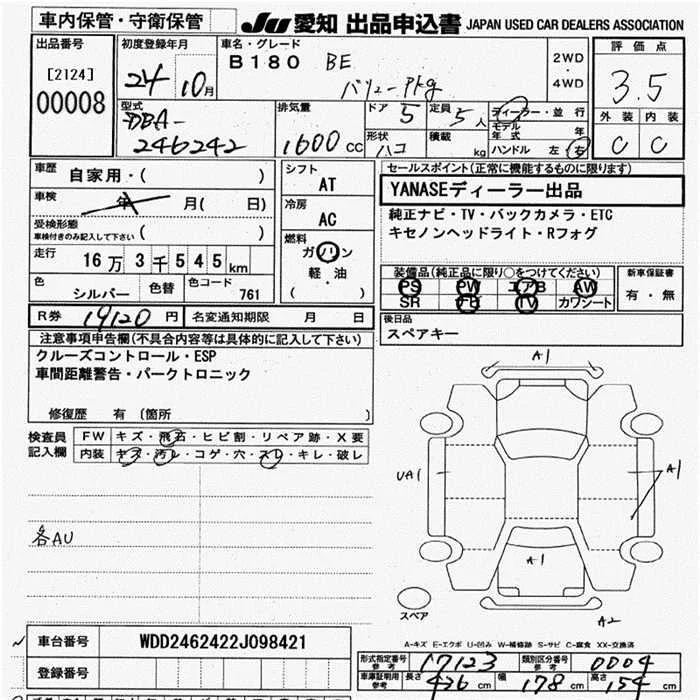 車内保管・守衛保管
JU 愛知 出品申込書 JAPAN USED CAR DEALERS ASSOCIATION
出品番号
[2124]
00008
初度登録年月
24 10月
車名・グレード
B180 BE
バリューPkg
2WD
・
4WD
評価点
3.5
外装 内装
C C
型式
DBA-
246242
排気量
1600 CC
ドア 5
定員 5人
形状 ハコ
積載 kg
ディーラー・並行
モデル年式 年
ハンドル 左 右
車歴
自家用・( )
車検
年 月( 日)
受検形態
車検付きのみ記入して下さい ( )
走行
16万3千545km
色 シルバー
色替
色コード 761
シフト
AT
冷房
AC
燃料
ガソリン
軽・油
( )
セールスポイント(正常に機能するものに限ります)
YANASEディーラー出品
純正ナビ・TV・バックカメラ・ETC
キセノンヘッドライト・Rフォグ
装備品(純正品に限り○をつけてください)
PS PW エアB AW
SR TV カワシート
新車保証書
有・無
R券 19120 円
名変通知期限 月 日
後日品
スペアキー
注意事項申告欄(不具合内容等は具体的に記入して下さい)
クルーズコントロール・ESP
車間距離警告・パークトロニック
修復歴 有 〔箇所 〕
検査員
記入欄
FW キズ・飛石・ヒビ割・リペア跡・X要
内装 キズ・汚レ・コゲ・穴・スレ・キレ・破レ
各AU
A1
UA1
A1
A1
スペア
A2
A-キズ E-エクボ U-凹み W-補修跡 S-サビ C-腐食 XX-交換済
車台番号
WDD2462422J098421
登録番号
型式指定番号
参考
17123
類別区分番号
参考
0004
車庫証明用
参考
長さ 436 cm 幅 178 cm 高さ 154 cm